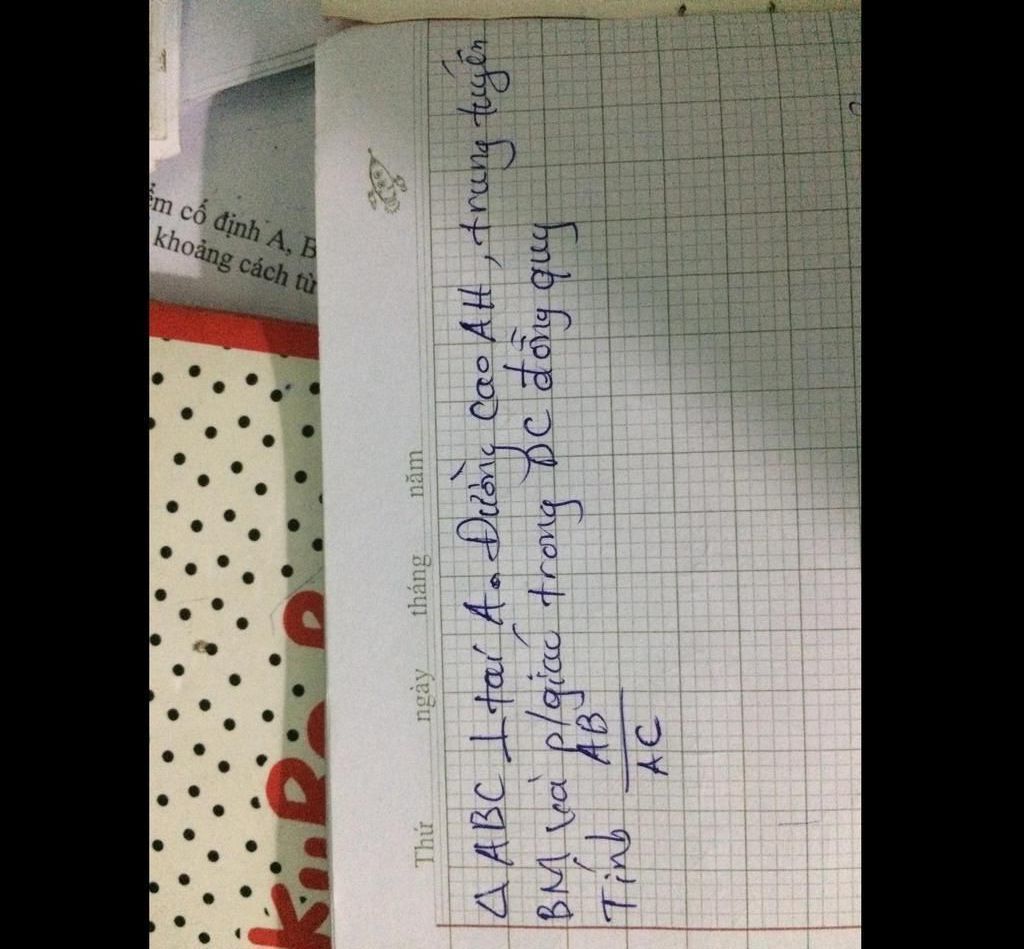 Thứ ngày tháng năm
Δ ABC ⊥ tại A. Đường cao AH, trung tuyến
BM và p/giác trong DC đồng quy
Tính AB/AC
ểm cố định A, B
khoảng cách từ